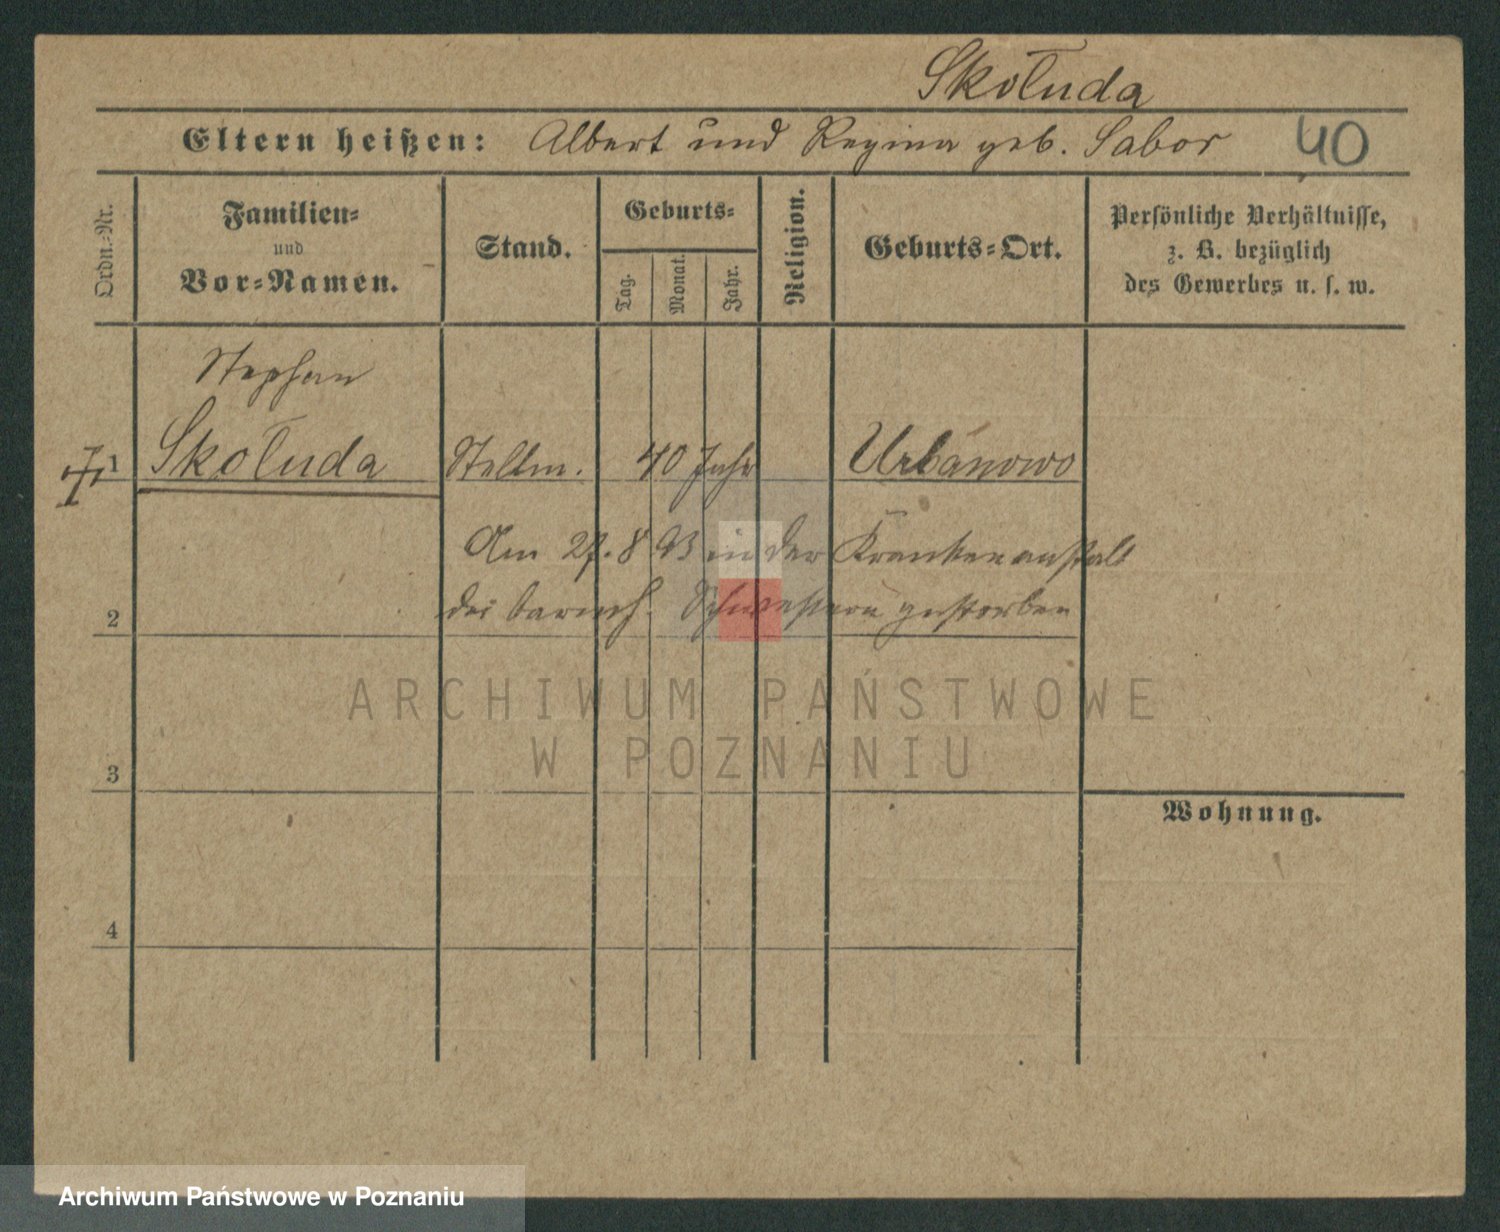 Skołuda
Eltern heißen: Albert und Regina geb. Sabor 40
Ordn.-Nr.
Familien-
und
Vor-Namen.
Stand.
Geburts-
Tag.
Monat.
Jahr.
Religion.
Geburts-Ort.
Persönliche Verhältnisse,
z. B. bezüglich
des Gewerbes u. s. w.
Stephan
1 Skołuda Stellm. 40 Jahr Urbanowo
Am 27. 8 93 in der Krankenanstalt
2 der barmh. Schwestern gestorben
ARCHIWUM PAŃSTWOWE
W POZNANIU
3
Wohnung.
4
Archiwum Państwowe w Poznaniu